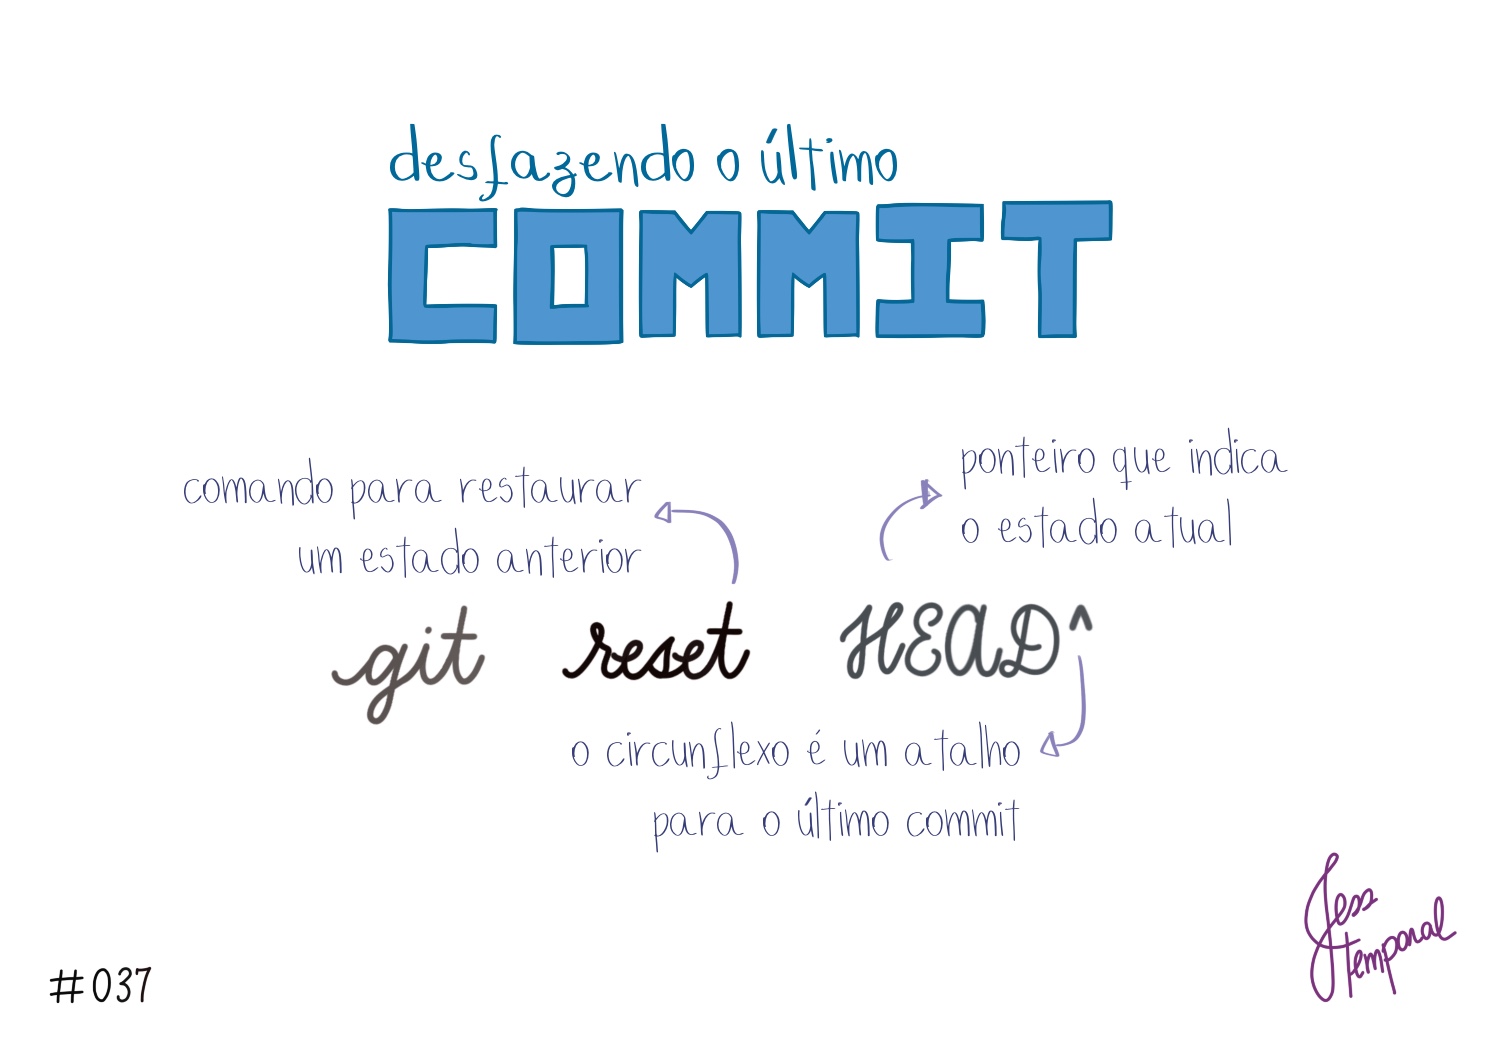 desfazendo o último
COMMIT
comando para restaurar
um estado anterior
ponteiro que indica
o estado atual
git reset HEAD^
o circunflexo é um atalho
para o último commit
#037
Jess
temporal